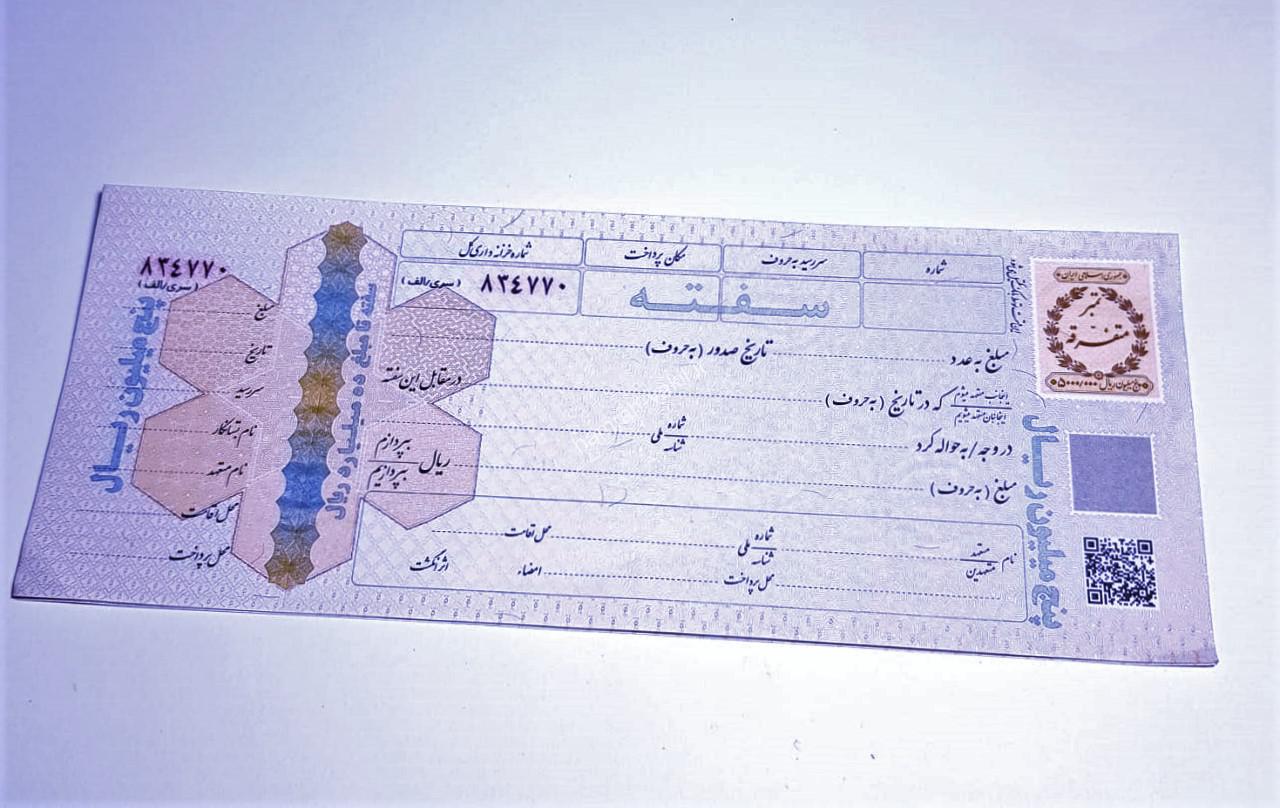 جمهوری اسلامی ایران
تمبر
متفرقه
پنج میلیون ریال ۵۰۰۰/۰۰۰
پنج میلیون ریال
شماره
سررسید به حروف
مکان پرداخت
شماره خزانه داری کل
سفته
۸۳٤۷۷۰
(سری/الف)
مبلغ به عدد تاریخ صدور (به حروف)
اینجانب متعهد میشوم
اینجانبان متعهد میشویم
که در تاریخ (به حروف) در مقابل این سفته
در وجه/به حواله کرد شماره
شناسه
ملی
مبلغ (به حروف) ریال بپردازم
بپردازیم
نام متعهد
متعهدین
شماره
شناسه
ملی
محل اقامت
محل پرداخت امضاء اثر انگشت
سفته تا مبلغ ده میلیارد ریال
۸۳٤۷۷۰
(سری/الف)
مبلغ
تاریخ
سررسید
نام بستانکار
نام متعهد
محل اقامت
محل پرداخت
پنج میلیون ریال